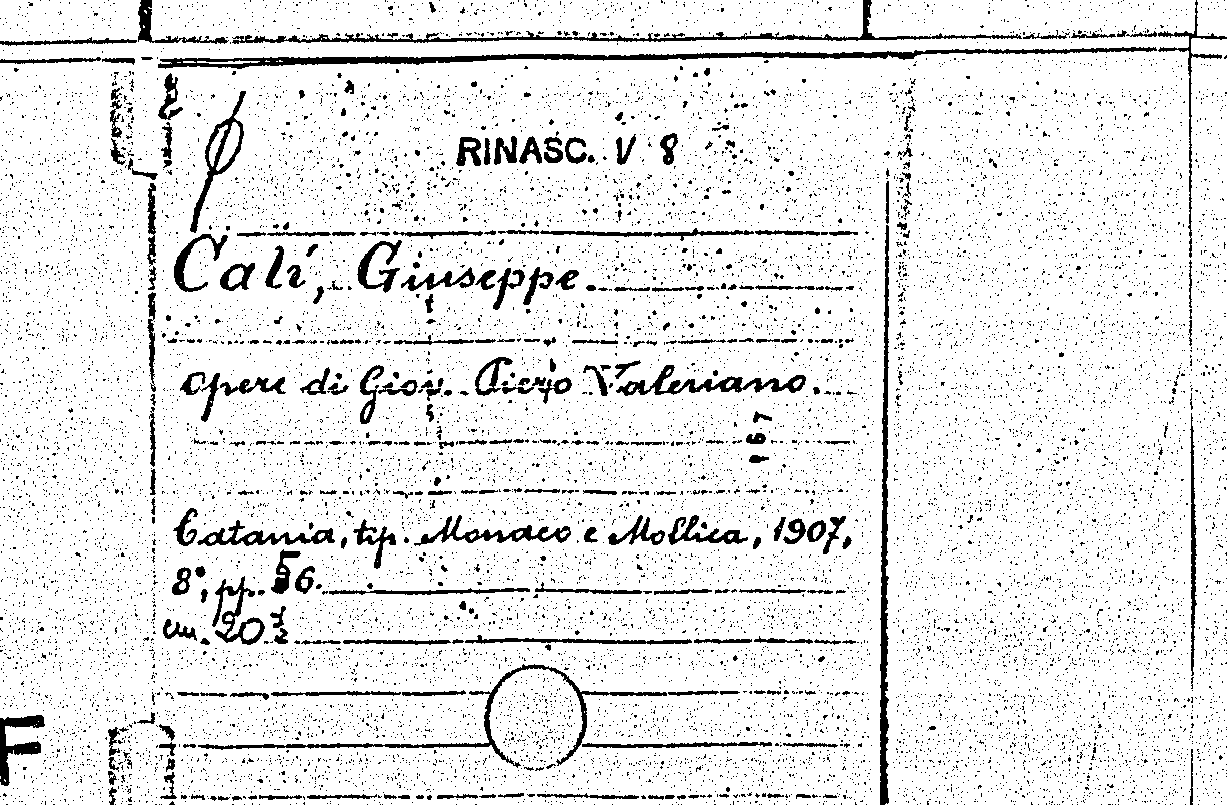 φ
RINASC. V 8
Calí, Giuseppe.
opere di Giov. Pierio Valeriano.
167
Catania, tip. Monaco e Mollica, 1907,
8°, pp. 56.
cm. 20 ½
F